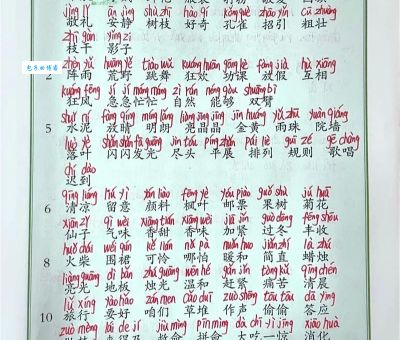 jìng lǐ ān jìng shù zhī hào qí kǒng què zhāo yǐn cū zhuàng
敬礼 安静 树枝 好奇 孔雀 招引 粗壮
zhī gàn yǐng zi
枝干 影子
zhèn yǔ huāng yě tiào wǔ kuáng huān gōng kè fàng jià hù xiāng
2 阵雨 荒野 跳舞 狂欢 功课 放假 互相
kuáng fēng jí jí máng máng zì rán néng gòu shuāng bì
狂风 急急忙忙 自然 能够 双臂
shuǐ ní fàng qíng míng lǎng liàng jīng jīng jīn huáng yǔ zhū yuàn qiáng
5 水泥 放晴 明朗 亮晶晶 金黄 雨珠 院墙
luò yè shǎn shǎn fā guāng jìn tóu píng zhǎn pái liè guī zé gē chàng
落叶 闪闪发光 尽头 平展 排列 规则 歌唱
chí dào
迟到
qīng liáng liú yì yán liào fēng yè yóu piào guǒ shù jú huā
6 清凉 留意 颜料 枫叶 邮票 果树 菊花
xiān zǐ qì wèi xiāng tián xiāng wèi jiā jǐn guò dōng fēng shōu
仙子 气味 香甜 香味 加紧 过冬 丰收
huǒ chái wéi qún kě lián nǎ pà nuǎn huo jiǎn zhí là zhú
8 火柴 围裙 可怜 哪怕 暖和 简直 蜡烛
liàng guāng dì bǎn zhú guāng wēn hé gǎn jǐn tòng kǔ qīng chén
亮光 地板 烛光 温和 赶紧 痛苦 清晨
lǚ xíng yào hǎo zán men cǎo duī zuò shēng tōu tōu dā ying
10 旅行 要好 咱们 草堆 作声 偷偷 答应
zuò mèng lái de jí jiù mìng pīn mìng dà chī yì jīng xiāo huà